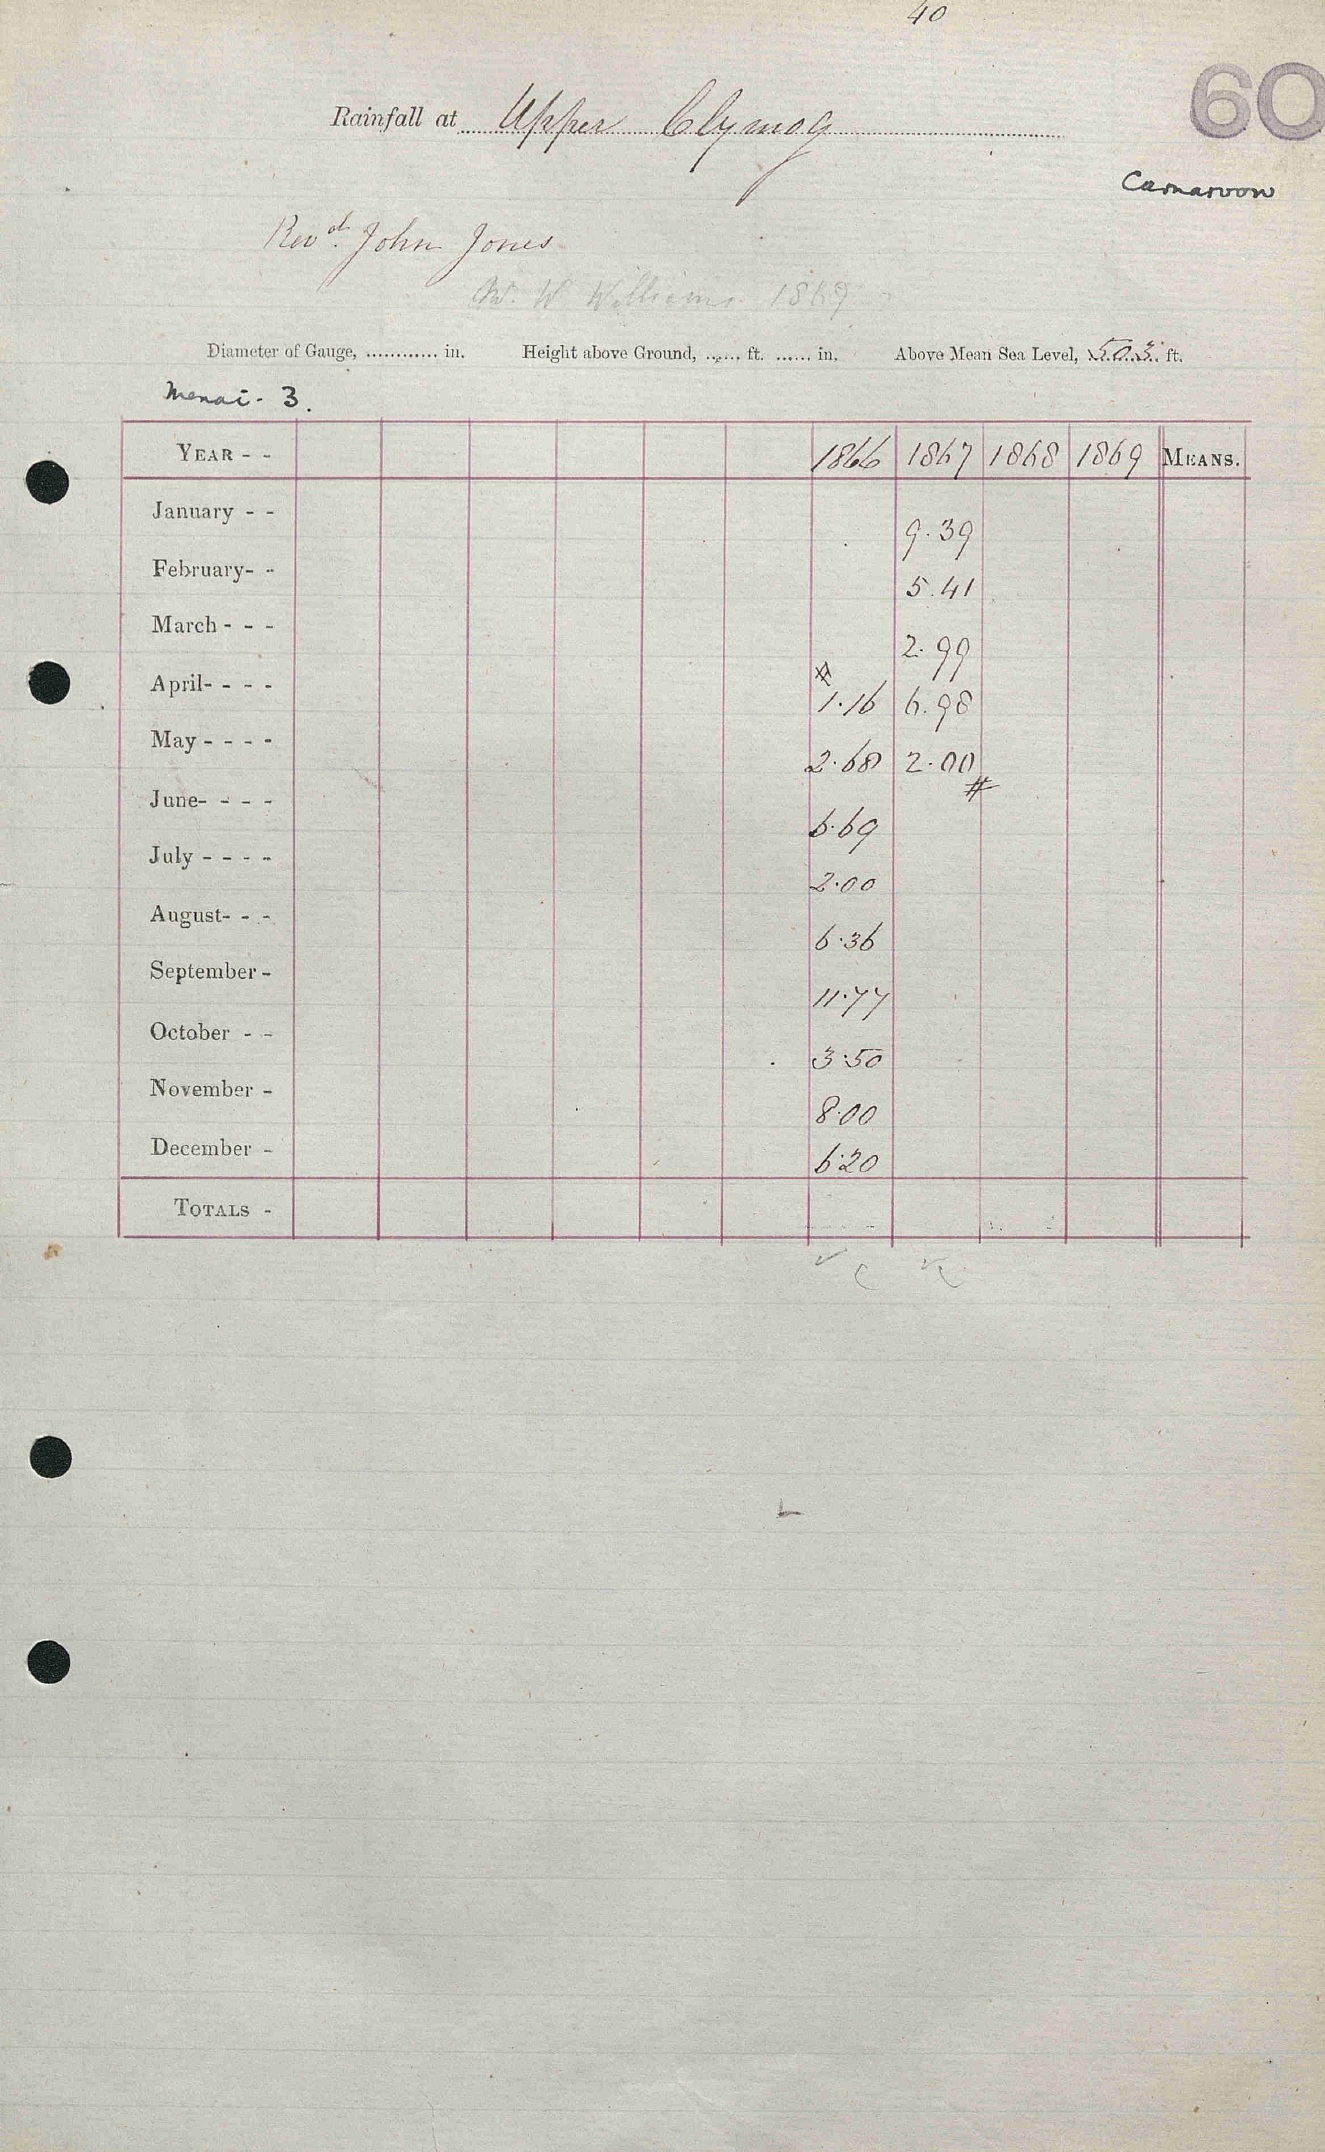 40
60
Rainfall at Upper Clymog
Carnarvon
Rev.d John Jones
W. W Williams. 1869
Diameter of Gauge, ............ in. Height above Ground, ...... ft. ...... in. Above Mean Sea Level, 503 ft.
Menai - 3.
YEAR - - 1866 1867 1868 1869 MEANS.
January - - 9.39
February- - 5.41
March - - - 2.99
April- - - - # 1.16 6.98
May - - - - 2.68 2.00 #
June- - - - 6.69
July - - - - 2.00
August- - - 6.36
September - 11.77
October - - 3.50
November - 8.00
December - 6.20
TOTALS -